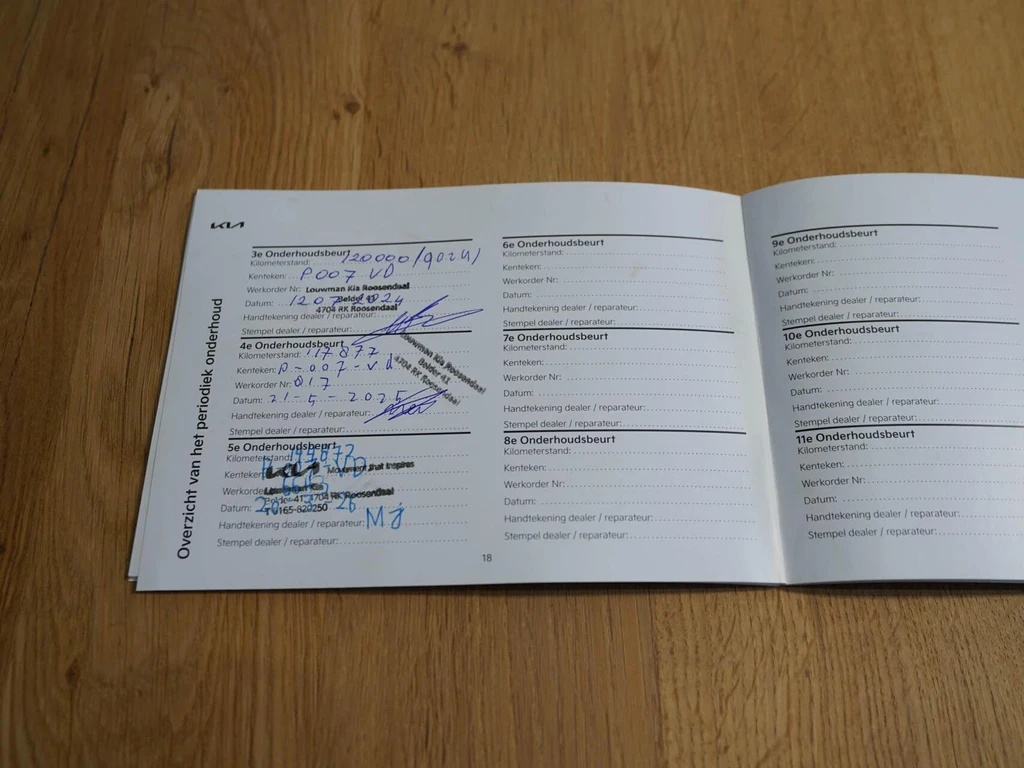 KIA
Overzicht van het periodiek onderhoud
3e Onderhoudsbeurt
Kilometerstand: 120000/90241
Kenteken: P007 VD
Werkorder Nr: Louwman Kia Roosendaal
Belder 41
Datum: 1207 2024
4704 RK Roosendaal
Handtekening dealer / reparateur:
Stempel dealer / reparateur:
4e Onderhoudsbeurt
Kilometerstand: 117877
Kenteken: P-007-Vd
Werkorder Nr: 017
Datum: 21-5-2025
Handtekening dealer / reparateur:
Stempel dealer / reparateur:
Louwman Kia Roosendaal
Belder 41
4704 RK Roosendaal
5e Onderhoudsbeurt
Kilometerstand:
Kenteken:
KIA Movement that inspires
Werkorder
Louwman Kia
Belder 41 4704 RK Roosendaal
Datum: 20 26
T 0165-820250
Handtekening dealer / reparateur: Mj
Stempel dealer / reparateur:
6e Onderhoudsbeurt
Kilometerstand:
Kenteken:
Werkorder Nr:
Datum:
Handtekening dealer / reparateur:
Stempel dealer / reparateur:
7e Onderhoudsbeurt
Kilometerstand:
Kenteken:
Werkorder Nr:
Datum:
Handtekening dealer / reparateur:
Stempel dealer / reparateur:
8e Onderhoudsbeurt
Kilometerstand:
Kenteken:
Werkorder Nr:
Datum:
Handtekening dealer / reparateur:
Stempel dealer / reparateur:
18
9e Onderhoudsbeurt
Kilometerstand:
Kenteken:
Werkorder Nr:
Datum:
Handtekening dealer / reparateur:
Stempel dealer / reparateur:
10e Onderhoudsbeurt
Kilometerstand:
Kenteken:
Werkorder Nr:
Datum:
Handtekening dealer / reparateur:
Stempel dealer / reparateur:
11e Onderhoudsbeurt
Kilometerstand:
Kenteken:
Werkorder Nr:
Datum:
Handtekening dealer / reparateur:
Stempel dealer / reparateur: